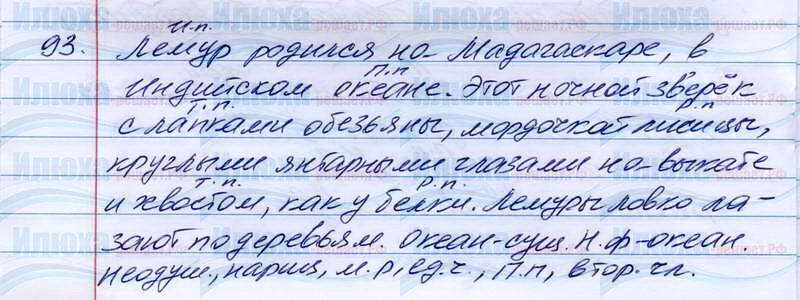 И.п.
93. Лемур родился на Мадагаскаре, в
П.п
Индийском океане. Этот ночной зверёк
Т.п. Р.п
с лапками обезьяны, мордочкой лисицы,
круглыми янтарными глазами на выкате
Т.п. Р.п.
и хвостом, как у белки. Лемуры ловко ла-
зают по деревьям. Океан-сущ. Н.ф-океан.
Неодуш., нариц, м.р, ед.ч., П.п, втор. чл.
Илюха решает.РФ